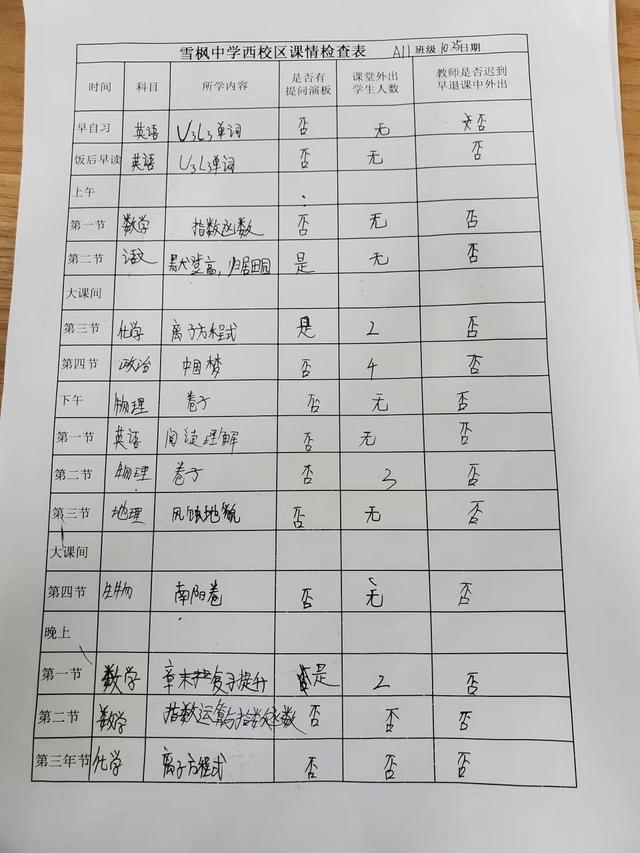 雪枫中学西校区课情检查表 A11班级10.25日期
时间 科目 所学内容 是否有提问演板 课堂外出学生人数 教师是否迟到早退课中外出
早自习 英语 U3L3单词 否 无 否
饭后早读 英语 U3L3单词 否 无 否
上午
第一节 数学 指数函数 否 无 否
第二节 语文 默登高,归园田居 是 无 否
大课间
第三节 化学 离子方程式 是 2 否
第四节 政治 中国梦 否 4 否
下午 物理 卷子 否 无 否
第一节 英语 阅读理解 否 无 否
第二节 物理 卷子 否 3 否
第三节 地理 风蚀地貌 否 无 否
大课间
第四节 生物 南阳卷 否 无 否
晚上
第一节 数学 章末复习提升 是 2 否
第二节 数学 指数运算与指数函数 否 否 否
第三年节 化学 离子方程式 否 否 否